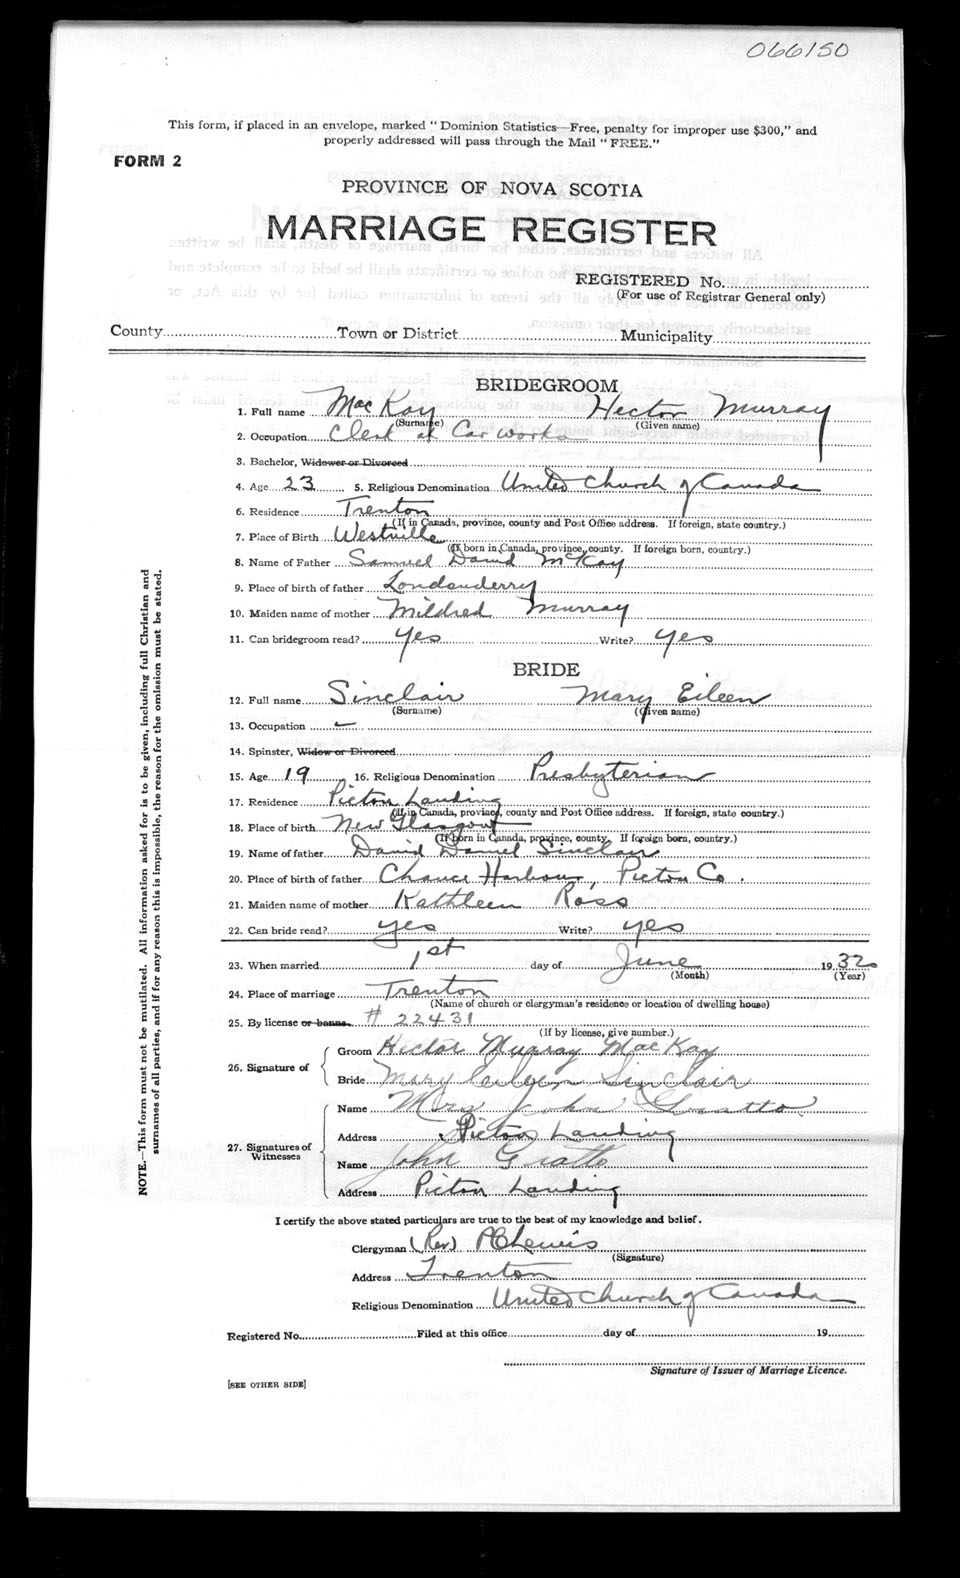 066150
This form, if placed in an envelope, marked "Dominion Statistics—Free, penalty for improper use $300," and
properly addressed will pass through the Mail "FREE."
FORM 2
PROVINCE OF NOVA SCOTIA
MARRIAGE REGISTER
REGISTERED No.
(For use of Registrar General only)
County Town or District Municipality
BRIDEGROOM
1. Full name MacKay Hector Murray
(Surname) (Given name)
2. Occupation Clerk at Car Works
3. Bachelor, Widower or Divorced
4. Age 23 5. Religious Denomination United Church of Canada
6. Residence Trenton
(If in Canada, province, county and Post Office address. If foreign, state country.)
7. Place of Birth Westville
(If born in Canada, province, county. If foreign born, country.)
8. Name of Father Samuel David McKay
9. Place of birth of father Londonderry
10. Maiden name of mother Mildred Murray
11. Can bridegroom read? yes Write? yes
BRIDE
12. Full name Sinclair Mary Eileen
(Surname) (Given name)
13. Occupation –
14. Spinster, Widow or Divorced
15. Age 19 16. Religious Denomination Presbyterian
17. Residence Pictou Landing
(If in Canada, province, county and Post Office address. If foreign, state country.)
18. Place of birth New Glasgow
(If born in Canada, province, county. If foreign born, country.)
19. Name of father David Daniel Sinclair
20. Place of birth of father Chance Harbour, Pictou Co.
21. Maiden name of mother Kathleen Ross
22. Can bride read? yes Write? yes
23. When married 1st day of June 1932
(Month) (Year)
24. Place of marriage Trenton
(Name of church or clergyman's residence or location of dwelling house)
25. By license or banns # 22431
(If by license, give number.)
26. Signature of
Groom Hector Murray MacKay
Bride Mary Eileen Sinclair
27. Signatures of Witnesses
Name Mrs John Gratto
Address Pictou Landing
Name John Gratto
Address Pictou Landing
I certify the above stated particulars are true to the best of my knowledge and belief.
Clergyman (Rev) Lewis
(Signature)
Address Trenton
Religious Denomination United Church of Canada
Registered No. Filed at this office day of 19
Signature of Issuer of Marriage Licence.
[SEE OTHER SIDE]
NOTE.—This form must not be mutilated. All information asked for is to be given, including full Christian and
surnames of all parties, and if for any reason this is impossible, the reason for the omission must be stated.